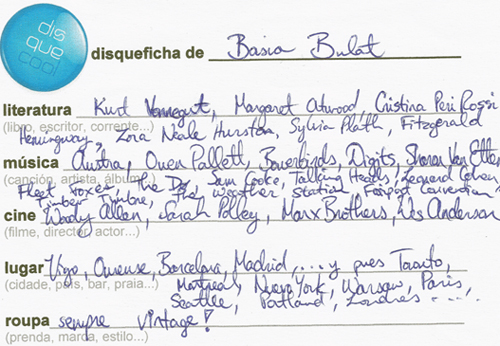 dis
que
cool
disqueficha de Basia Bulat
literatura Kurt Vonnegut, Margaret Atwood, Cristina Peri Rossi
(libro, escritor, corrente...)
Hemingway, Zora Neale Hurston, Sylvia Plath, Fitzgerald
música Austra, Owen Pallett, Bowerbirds, Digits, Sharon Van Etten,
(canción, artista, álbum)
Fleet Foxes, The D's, Sam Cooke, Talking Heads, Leonard Cohen,
Timber Timbre, The Weather Station, Fairport Convention!
cine Woody Allen, Sarah Polley, Marx Brothers, Wes Anderson
(filme, director, actor...)
lugar Vigo, Ourense, Barcelona, Madrid, ... y pues Toronto,
(cidade, país, bar, praia...)
Montreal, Nueva York, Warsaw, Paris,
Seattle, Portland, Londres ....
roupa sempre vintage!
(prenda, marca, estilo...)